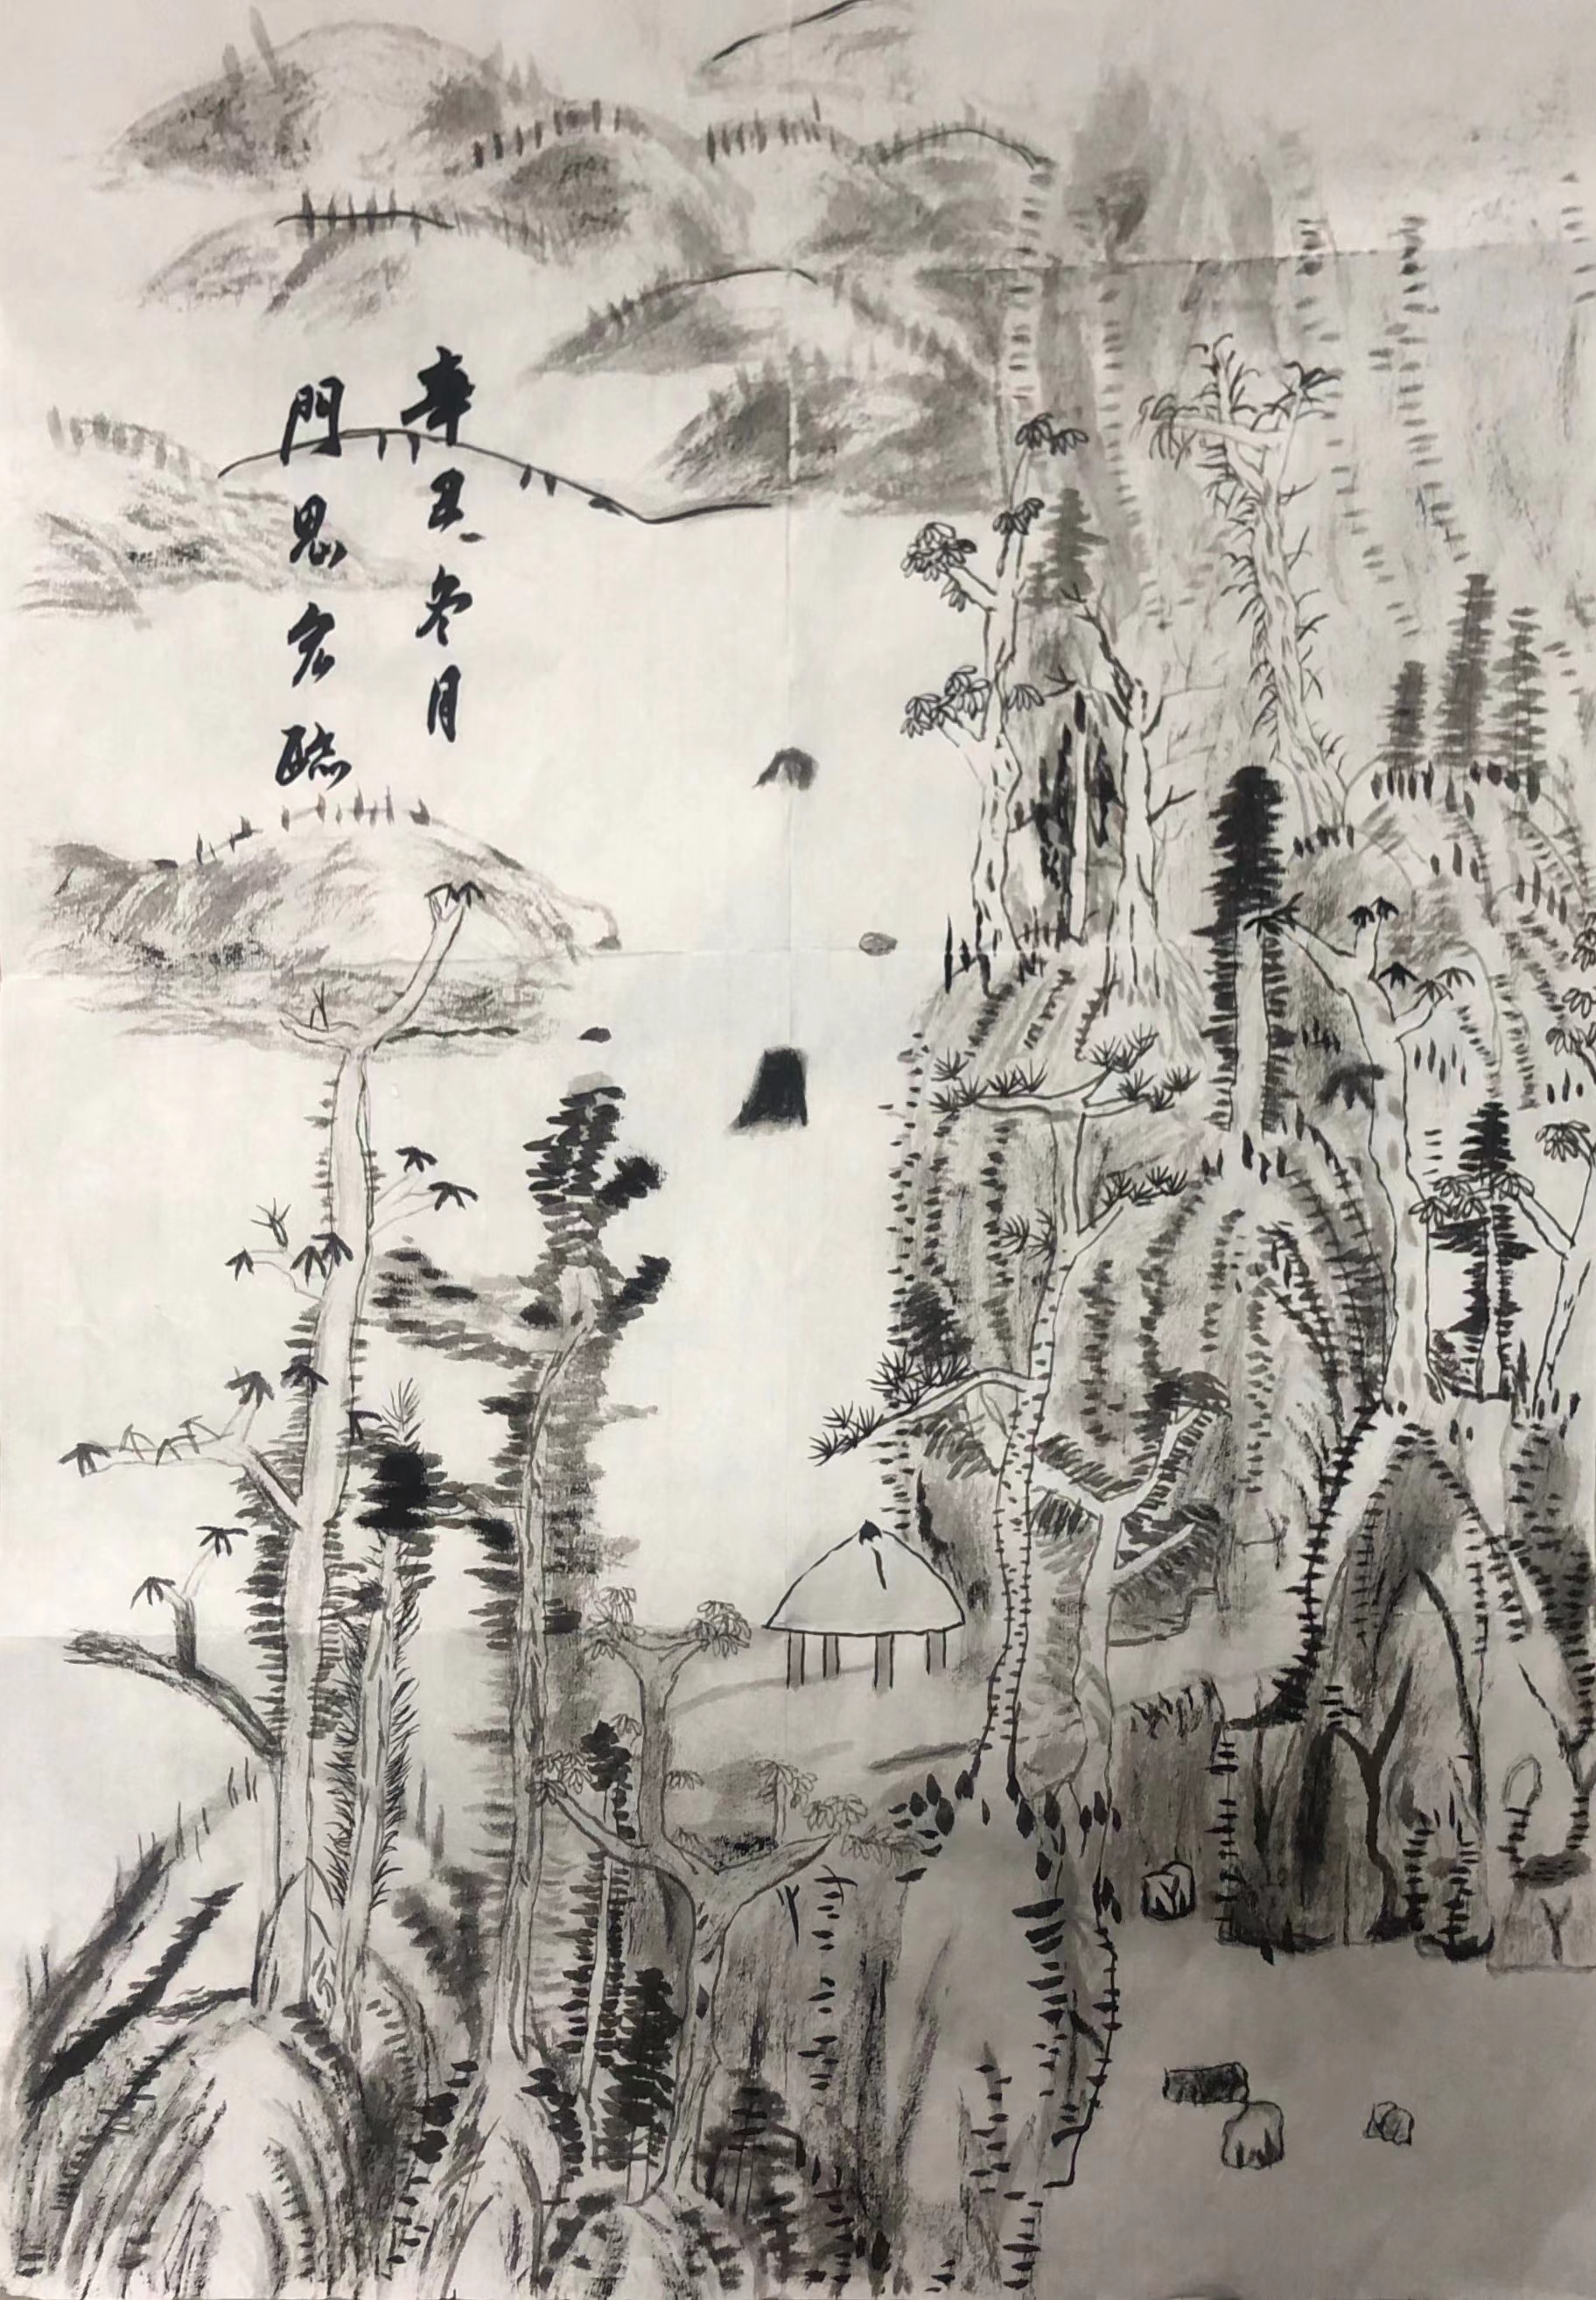 辛丑冬月
門思宏臨